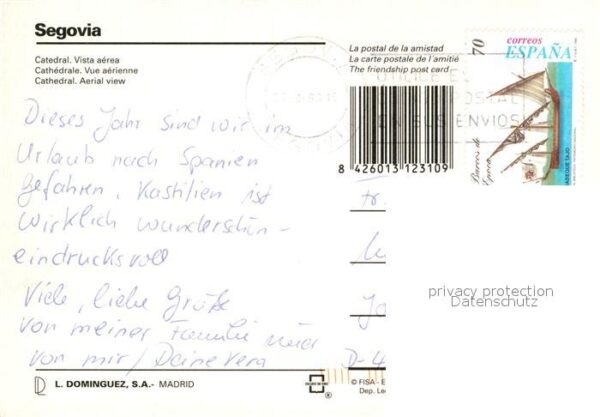 Segovia
Catedral. Vista aérea
Cathédrale. Vue aérienne
Cathedral. Aerial view
La postal de la amistad
La carte postale de l'amitié
The friendship post card
8 426013 123109
70
correos
ESPAÑA
Barcos de
Epoca
JABEQUE TAJO
UTILICE E
POSTAL
EN SUS ENVIOS
Dieses Jahr sind wir im
Urlaub nach Spanien
gefahren. Kastilien ist
wirklich wunderschön-
eindrucksvoll
Viele, liebe Grüße
von meiner Familie und
von mir / Deine Vera
Fr
D-4
privacy protection
Datenschutz
L. DOMINGUEZ, S.A.- MADRID
© FISA - E
Dep. Le